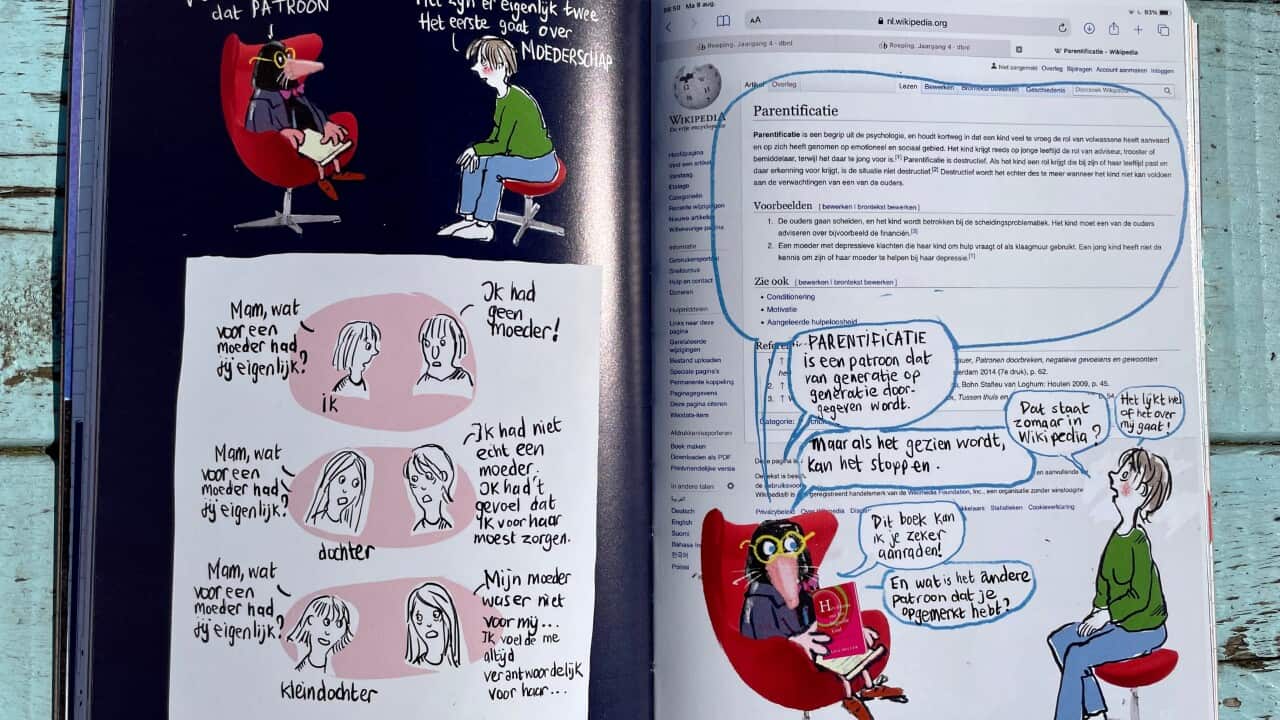 dat PATROON
Het zijn er eigenlijk twee
Het eerste gaat over
MOEDERSCHAP
Mam, wat
voor een
moeder had
jij eigenlijk?
ik
Ik had
geen
moeder!
Mam, wat
voor een
moeder had
jij eigenlijk?
dochter
Ik had niet
echt een
moeder.
Ik had 't
gevoel dat
ik voor haar
moest zorgen.
Mam, wat
voor een
moeder had
jij eigenlijk?
kleindochter
Mijn moeder
was er niet
voor mij...
Ik voelde me
altijd
verantwoordelijk
voor haar...
Ma 9 aug.
83%
AA
nl.wikipedia.org
Roeping. Jaargang 4 - dbnl
Roeping. Jaargang 4 - dbnl
Parentificatie - Wikipedia
Niet aangemeld Overleg Bijdragen Account aanmaken Inloggen
Artikel Overleg
Lezen Bewerken Brontekst bewerken Geschiedenis
Doorzoek Wikipedia
WIKIPEDIA
De vrije encyclopedie
Hoofdpagina
Vind een artikel
Vandaag
Etalage
Categorieën
Recente wijzigingen
Nieuwe artikelen
Willekeurige pagina
Informatie
Gebruikersportaal
Snelcursus
Hulp en contact
Doneren
Hulpmiddelen
Links naar deze
pagina
Gerelateerde
wijzigingen
Bestand uploaden
Speciale pagina's
Permanente koppeling
Paginagegevens
Deze pagina citeren
Wikidata-item
Afdrukken/exporteren
Boek maken
Downloaden als PDF
Printvriendelijke versie
In andere talen
العربية
Deutsch
English
Suomi
Bahasa
한국어
Polski
Parentificatie
Parentificatie is een begrip uit de psychologie, en houdt kortweg in dat een kind veel te vroeg de rol van volwassene heeft aanvaard
en op zich heeft genomen op emotioneel en sociaal gebied. Het kind krijgt reeds op jonge leeftijd de rol van adviseur, trooster of
bemiddelaar, terwijl het daar te jong voor is.[1] Parentificatie is destructief. Als het kind een rol krijgt die bij zijn of haar leeftijd past en
daar erkenning voor krijgt, is de situatie niet destructief.[2] Destructief wordt het echter des te meer wanneer het kind niet kan voldoen
aan de verwachtingen van een van de ouders.
Voorbeelden [ bewerken | brontekst bewerken ]
1. De ouders gaan scheiden, en het kind wordt betrokken bij de scheidingsproblematiek. Het kind moet een van de ouders
adviseren over bijvoorbeeld de financiën.[3]
2. Een moeder met depressieve klachten die haar kind om hulp vraagt of als klaagmuur gebruikt. Een jong kind heeft niet de
kennis om zijn of haar moeder te helpen bij haar depressie.[1]
Zie ook [ bewerken | brontekst bewerken ]
• Conditionering
• Motivatie
• Aangeleerde hulpeloosheid
Patronen doorbreken, negatieve gevoelens en gewoonten
2014 (7e druk), p. 62.
Bohn Stafleu van Loghum: Houten 2009, p. 45.
Tussen thuis en
Categorie:
PARENTIFICATIE
is een patroon dat
van generatie op
generatie door-
gegeven wordt.
Maar als het gezien wordt,
kan het stoppen.
Dat staat
zomaar in
Wikipedia?
Het lijkt wel
of het over
mij gaat!
en aanvullende
geregistreerd handelsmerk van de Wikimedia Foundation, Inc., een organisatie zonder winstoogmerk
Privacybeleid Over Wikipedia
Statistieken Cookieverklaring
Dit boek kan
ik je zeker
aanraden!
En wat is het andere
patroon dat je
opgemerkt hebt?